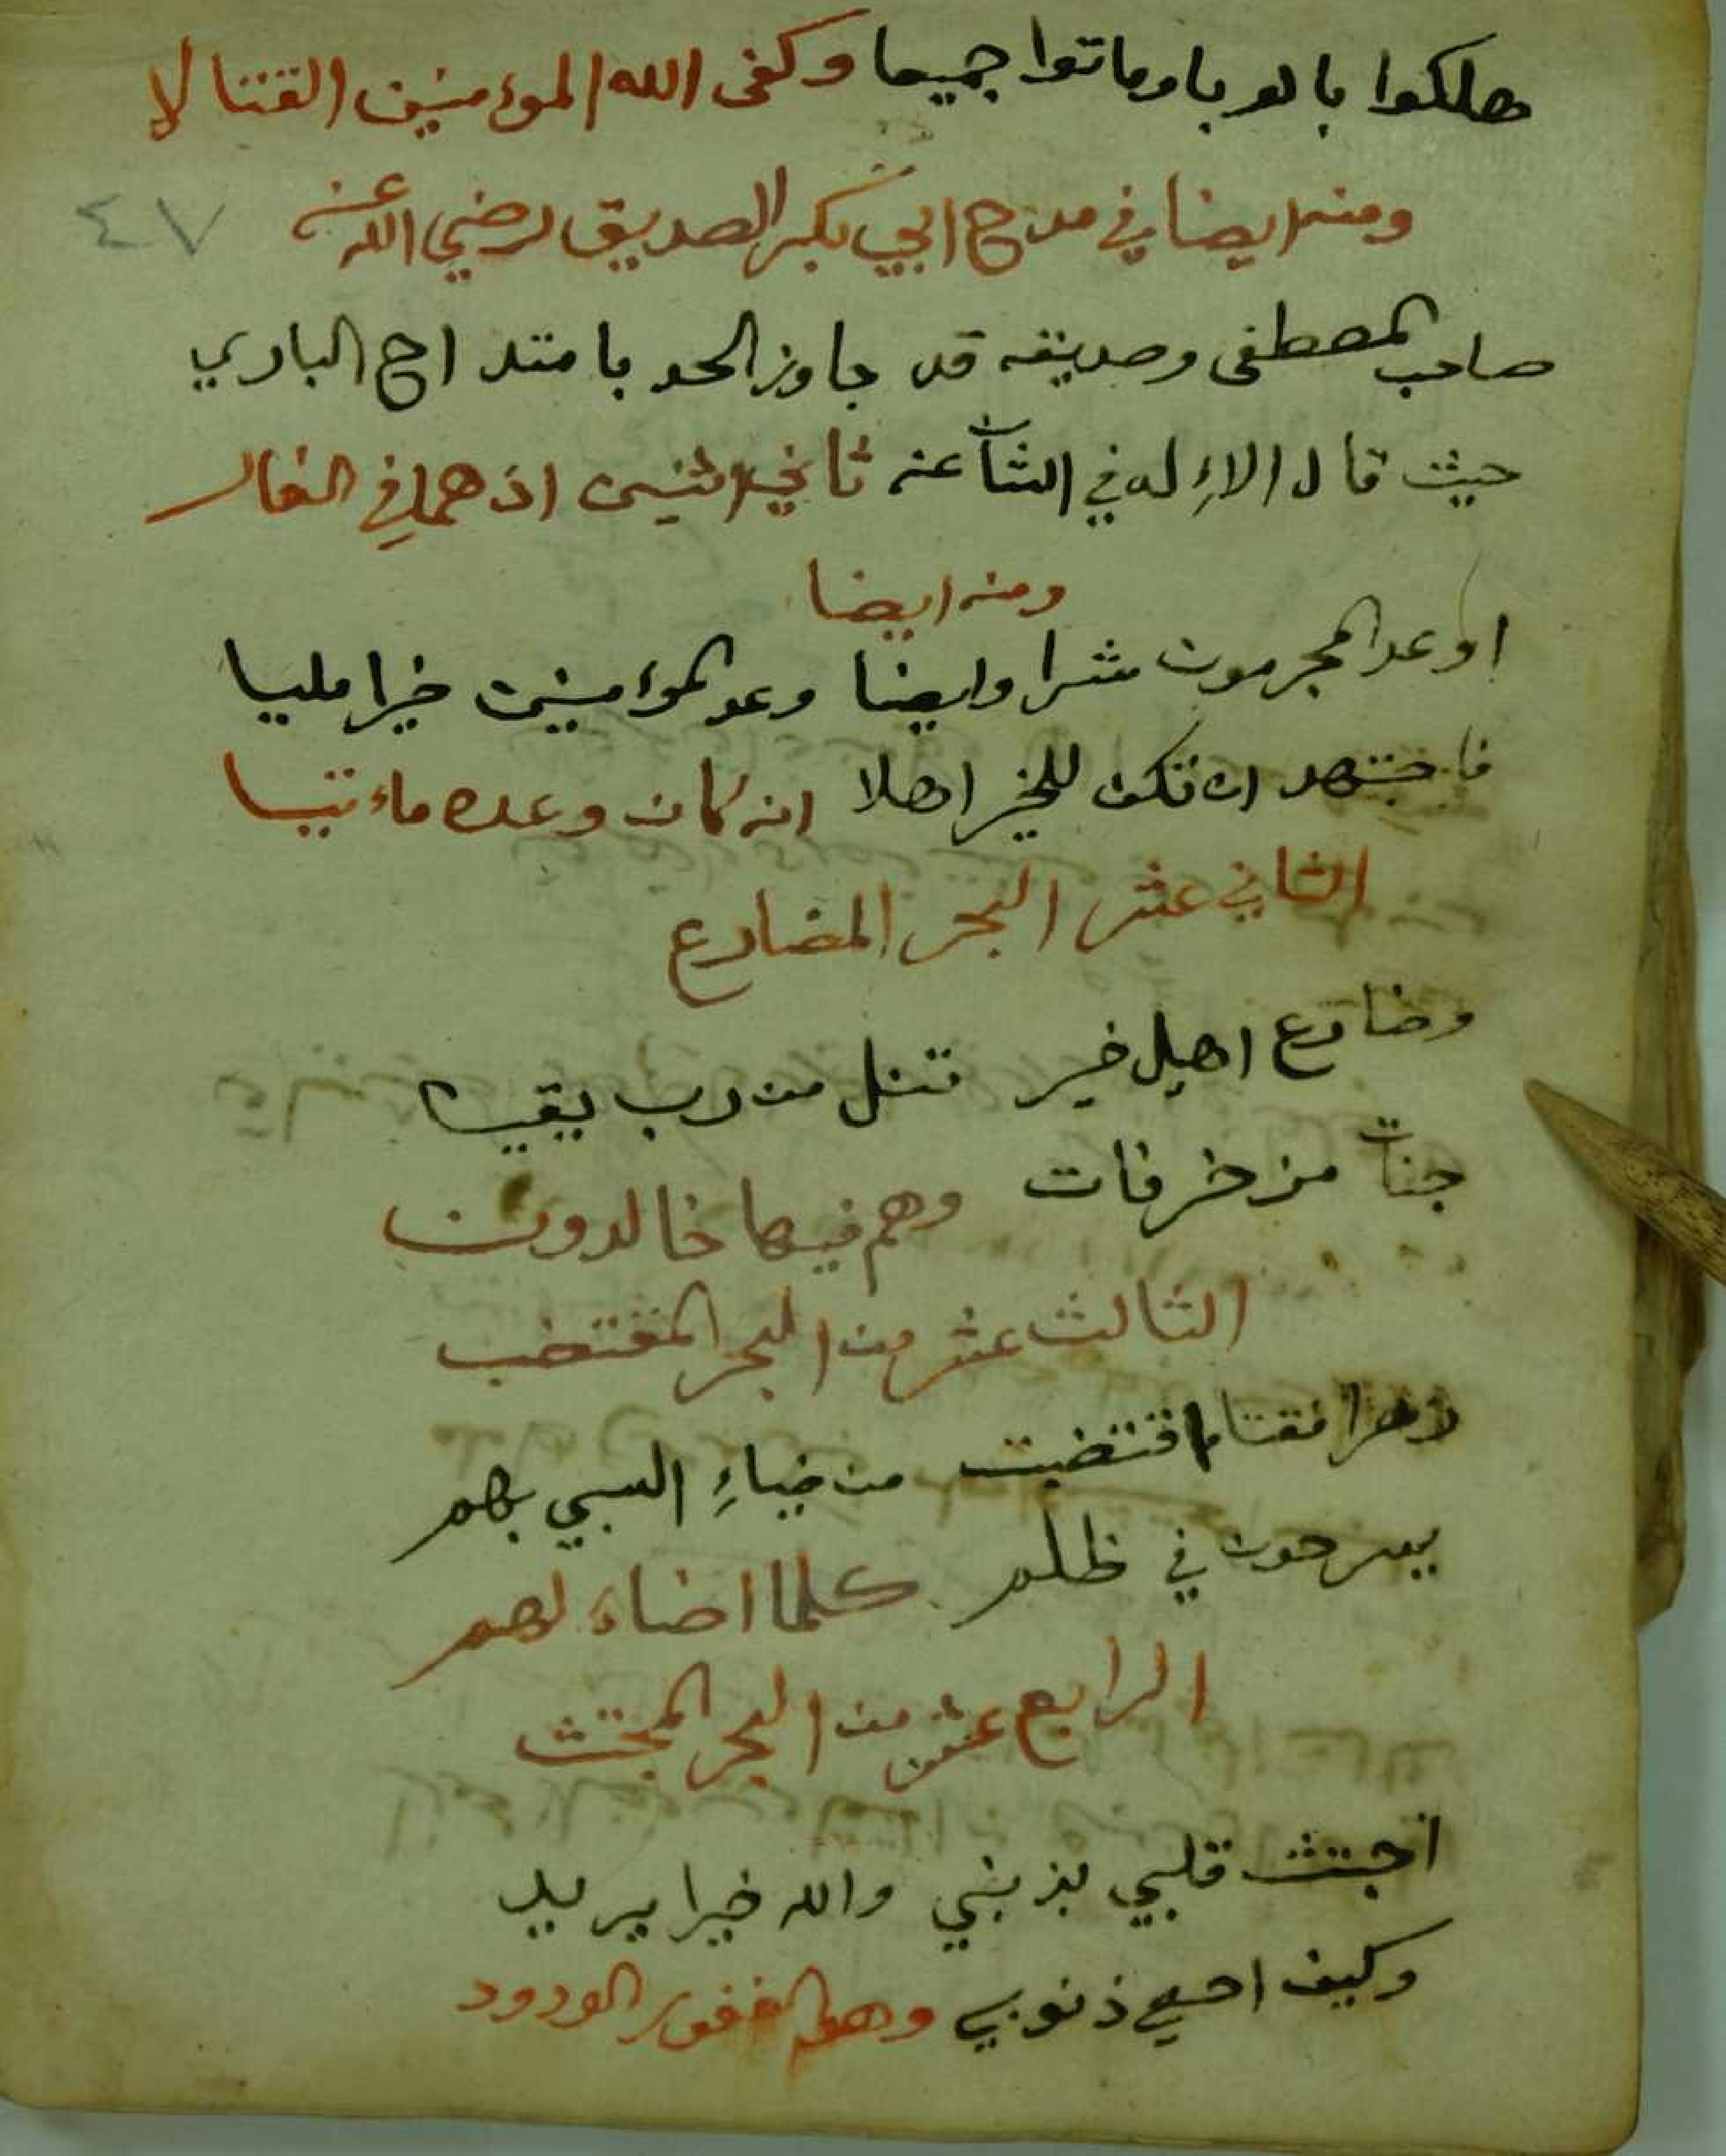 هلكوا بالوبا وماتوا جميعا وكفى الله المؤمنين القتالا
ومنه ايضا في مدح ابي بكر الصديق رضي الله عنه
٤٧
صاحب المصطفى وصديقه قد جاوز الحد بامتداح الباري
حيث قال الاله في الثنا عنه ثاني اثنين اذ هما في الغار
ومنه ايضا
اوعد المجرمون شرا وايضا وعد المؤمنين خيرا مليا
فاجتهد ان تكن للخير اهلا انه كان وعده ماءتيا
الثاني عشر البحر المضارع
وضارع اهيل خير تنل من رب يقينا
جنات مزخرفات وهم فيها خالدون
الثالث عشر من البحر المقتضب
من ضياء النبي بهم
يسرحون في ظلم كلما اضاء لهم
الرابع عشر من البحر المجتث
اجتث قلبي بذنبي والله خيرا يريد
وكيف احصي ذنوبي وهو الغفور الودود